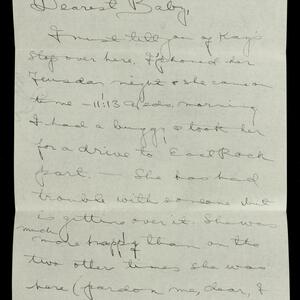 Dearest Baby,
I must tell you of Kay's
stop over here. I 'phoned her
Tuesday night & she came on
time - 11:13 Weds. morning
I had a buggy & took her
for a drive to East Rock
park. - She has had
trouble with someone but
is getting over it. She was
much
more happy than on the
two other times she was
here (pardon me, dear, I